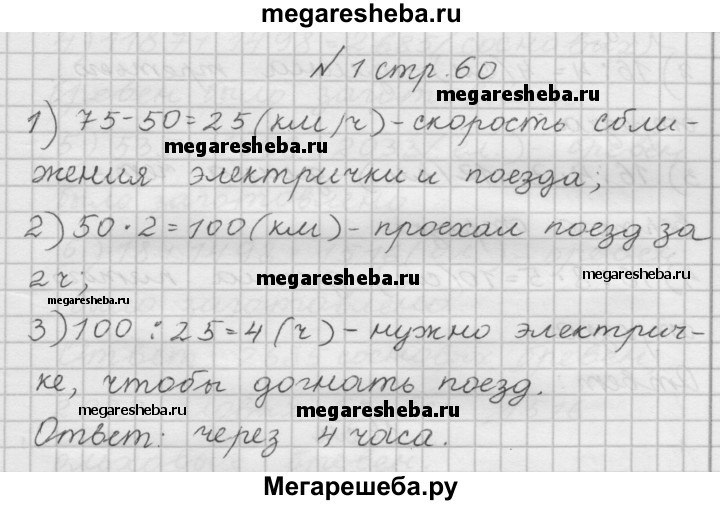 megaresheba.ru
№ 1 стр. 60
megaresheba.ru
1) 75-50=25(км/ч)-скорость сбли-
megaresheba.ru
жения электрички и поезда;
2) 50·2=100(км)-проехал поезд за
2ч;
megaresheba.ru
megaresheba.ru
megaresheba.ru
3) 100:25=4(ч)-нужно электрич-
ке, чтобы догнать поезд.
megaresheba.ru
megaresheba.ru
megaresheba.ru
Ответ: через 4 часа.
Мегарешеба.ру